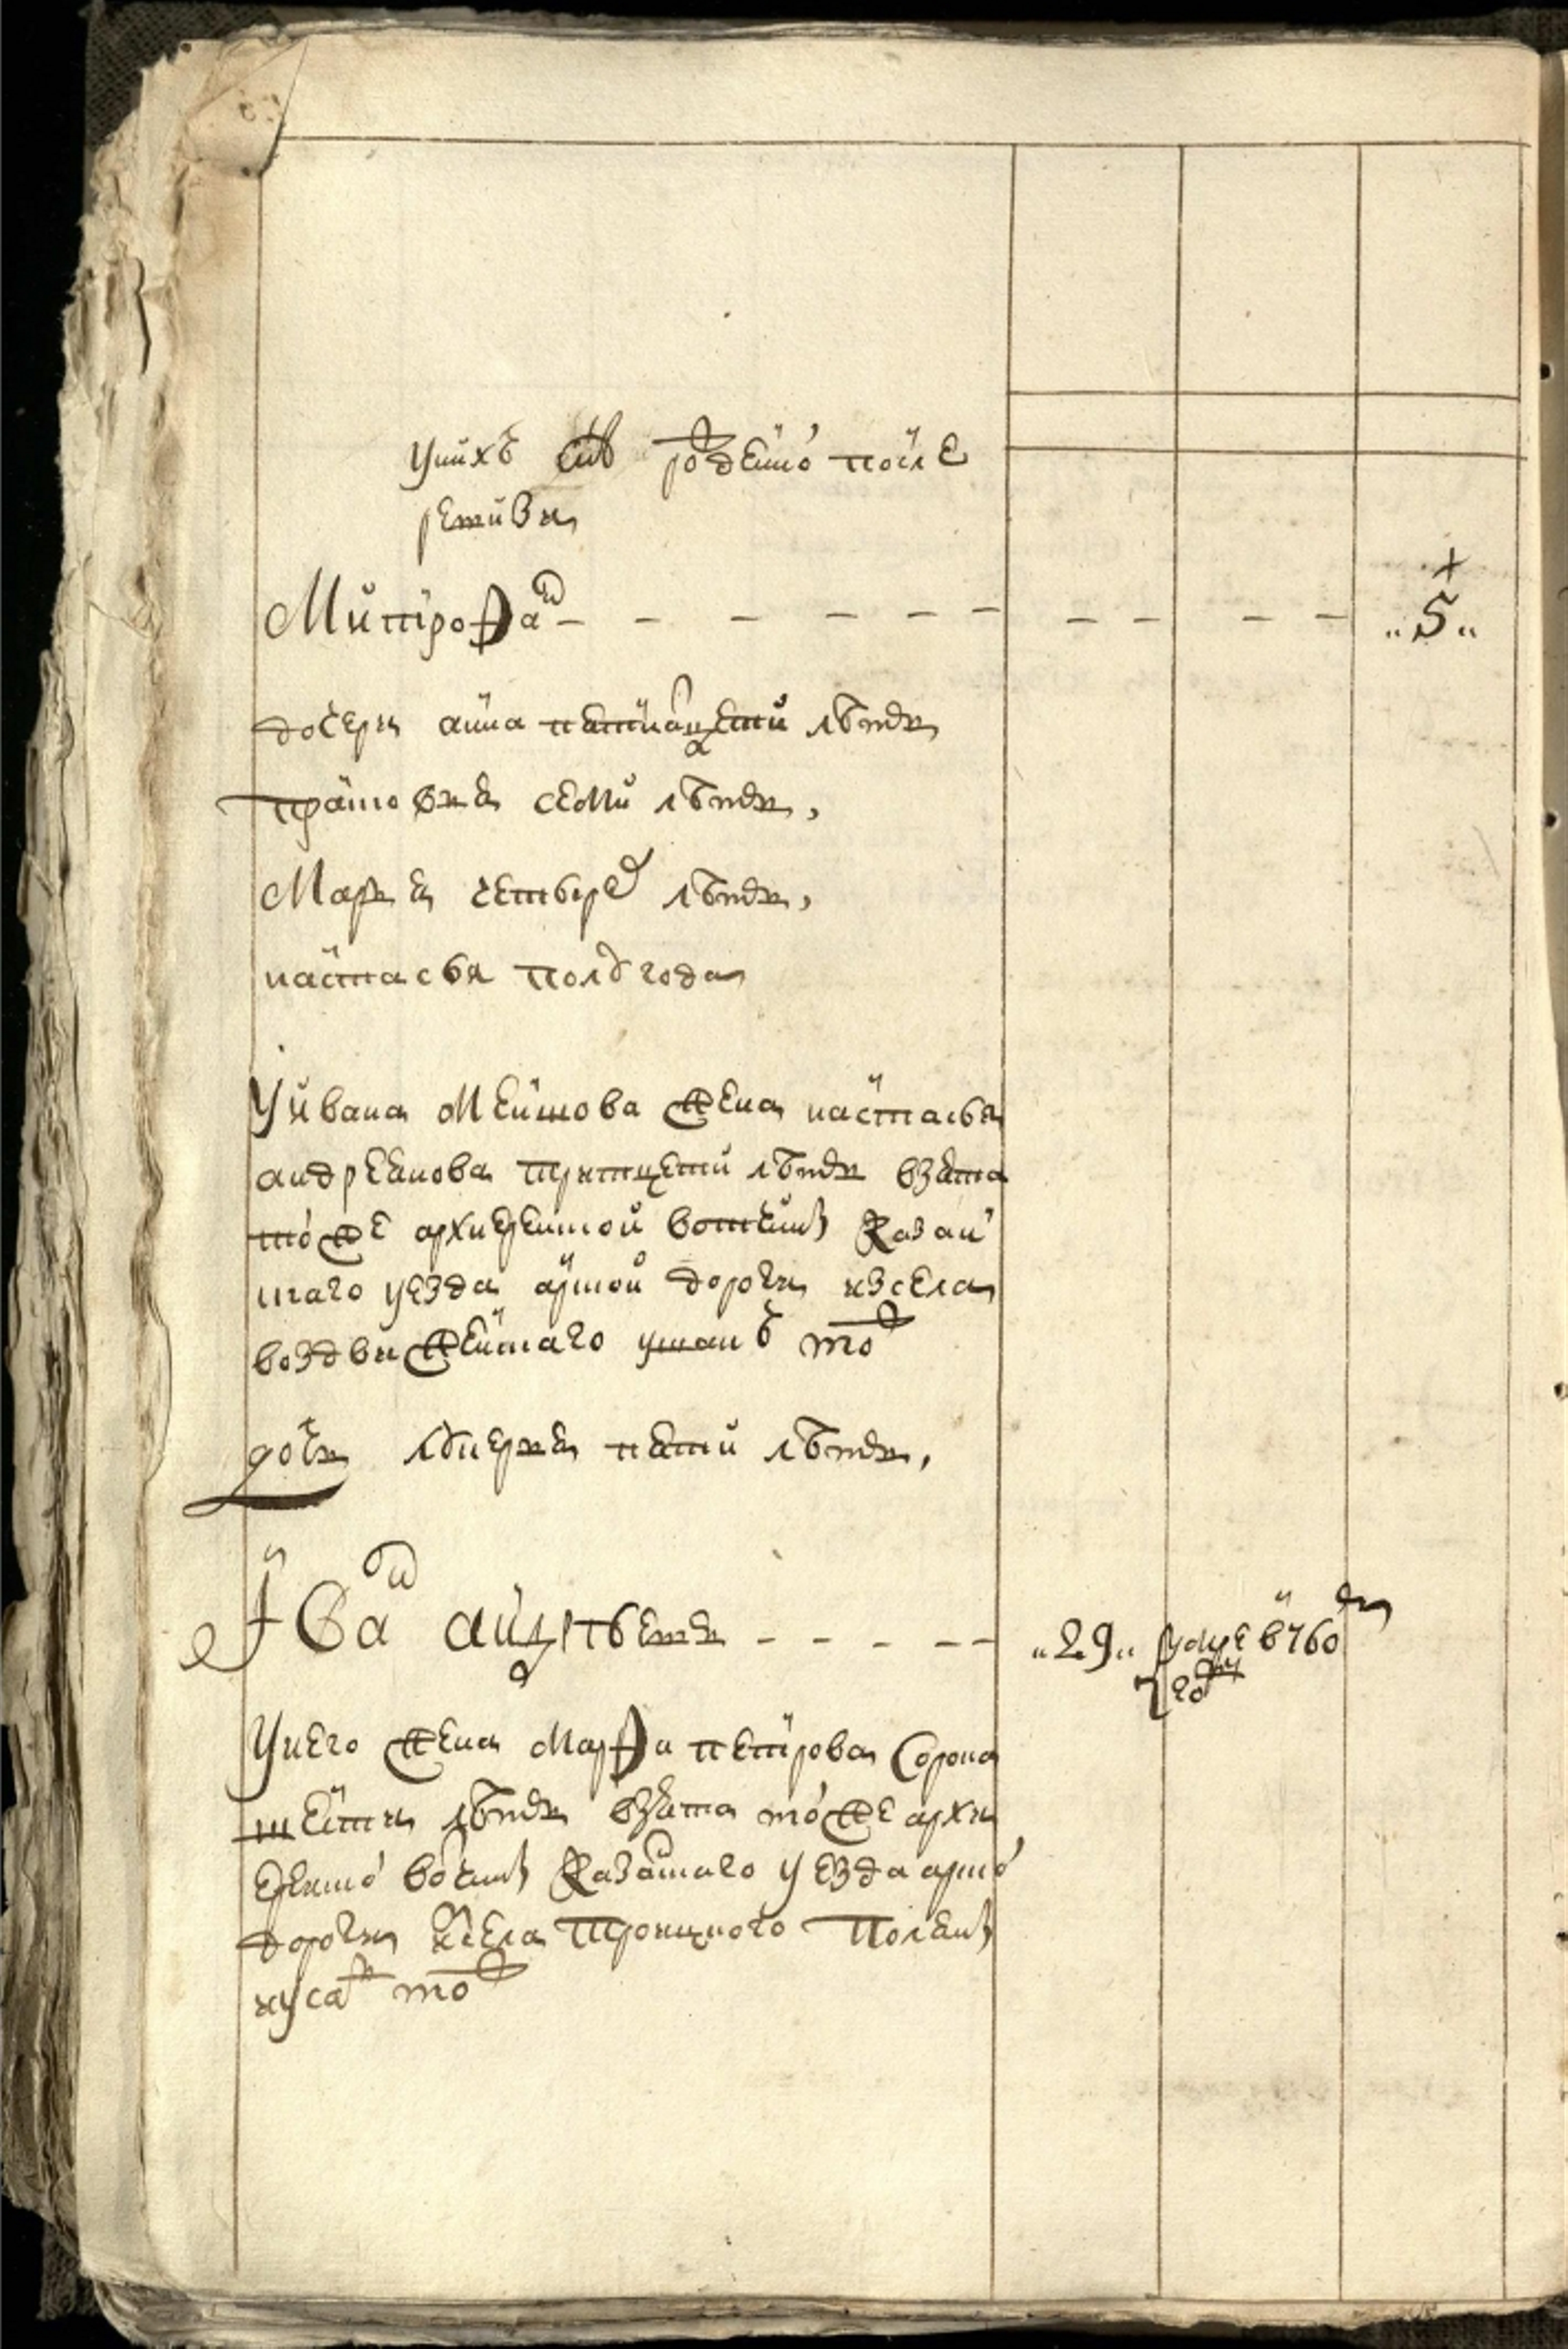 у них сын рожденной после
ревизии
Митрофан – – – – – – – – – – „5„
дочери анна пятнатцети летъ
прасковья семи летъ,
Марья четырех летъ,
настасья полугода
У ивана Меншова жена настасья
андреянова тритцети летъ взята
той же архиерейской вотчины казан
скаго уезда арской дороги из села
воздвиженскаго тож
дочь лукерья пяти летъ,
Иван – – – – – „29„ в 760 м
году
У него жена Марфа петрова сорока
шести летъ взята той же архи
ерейской вотчины казанскаго уезда арской
дороги из села троицкого поляны
тож